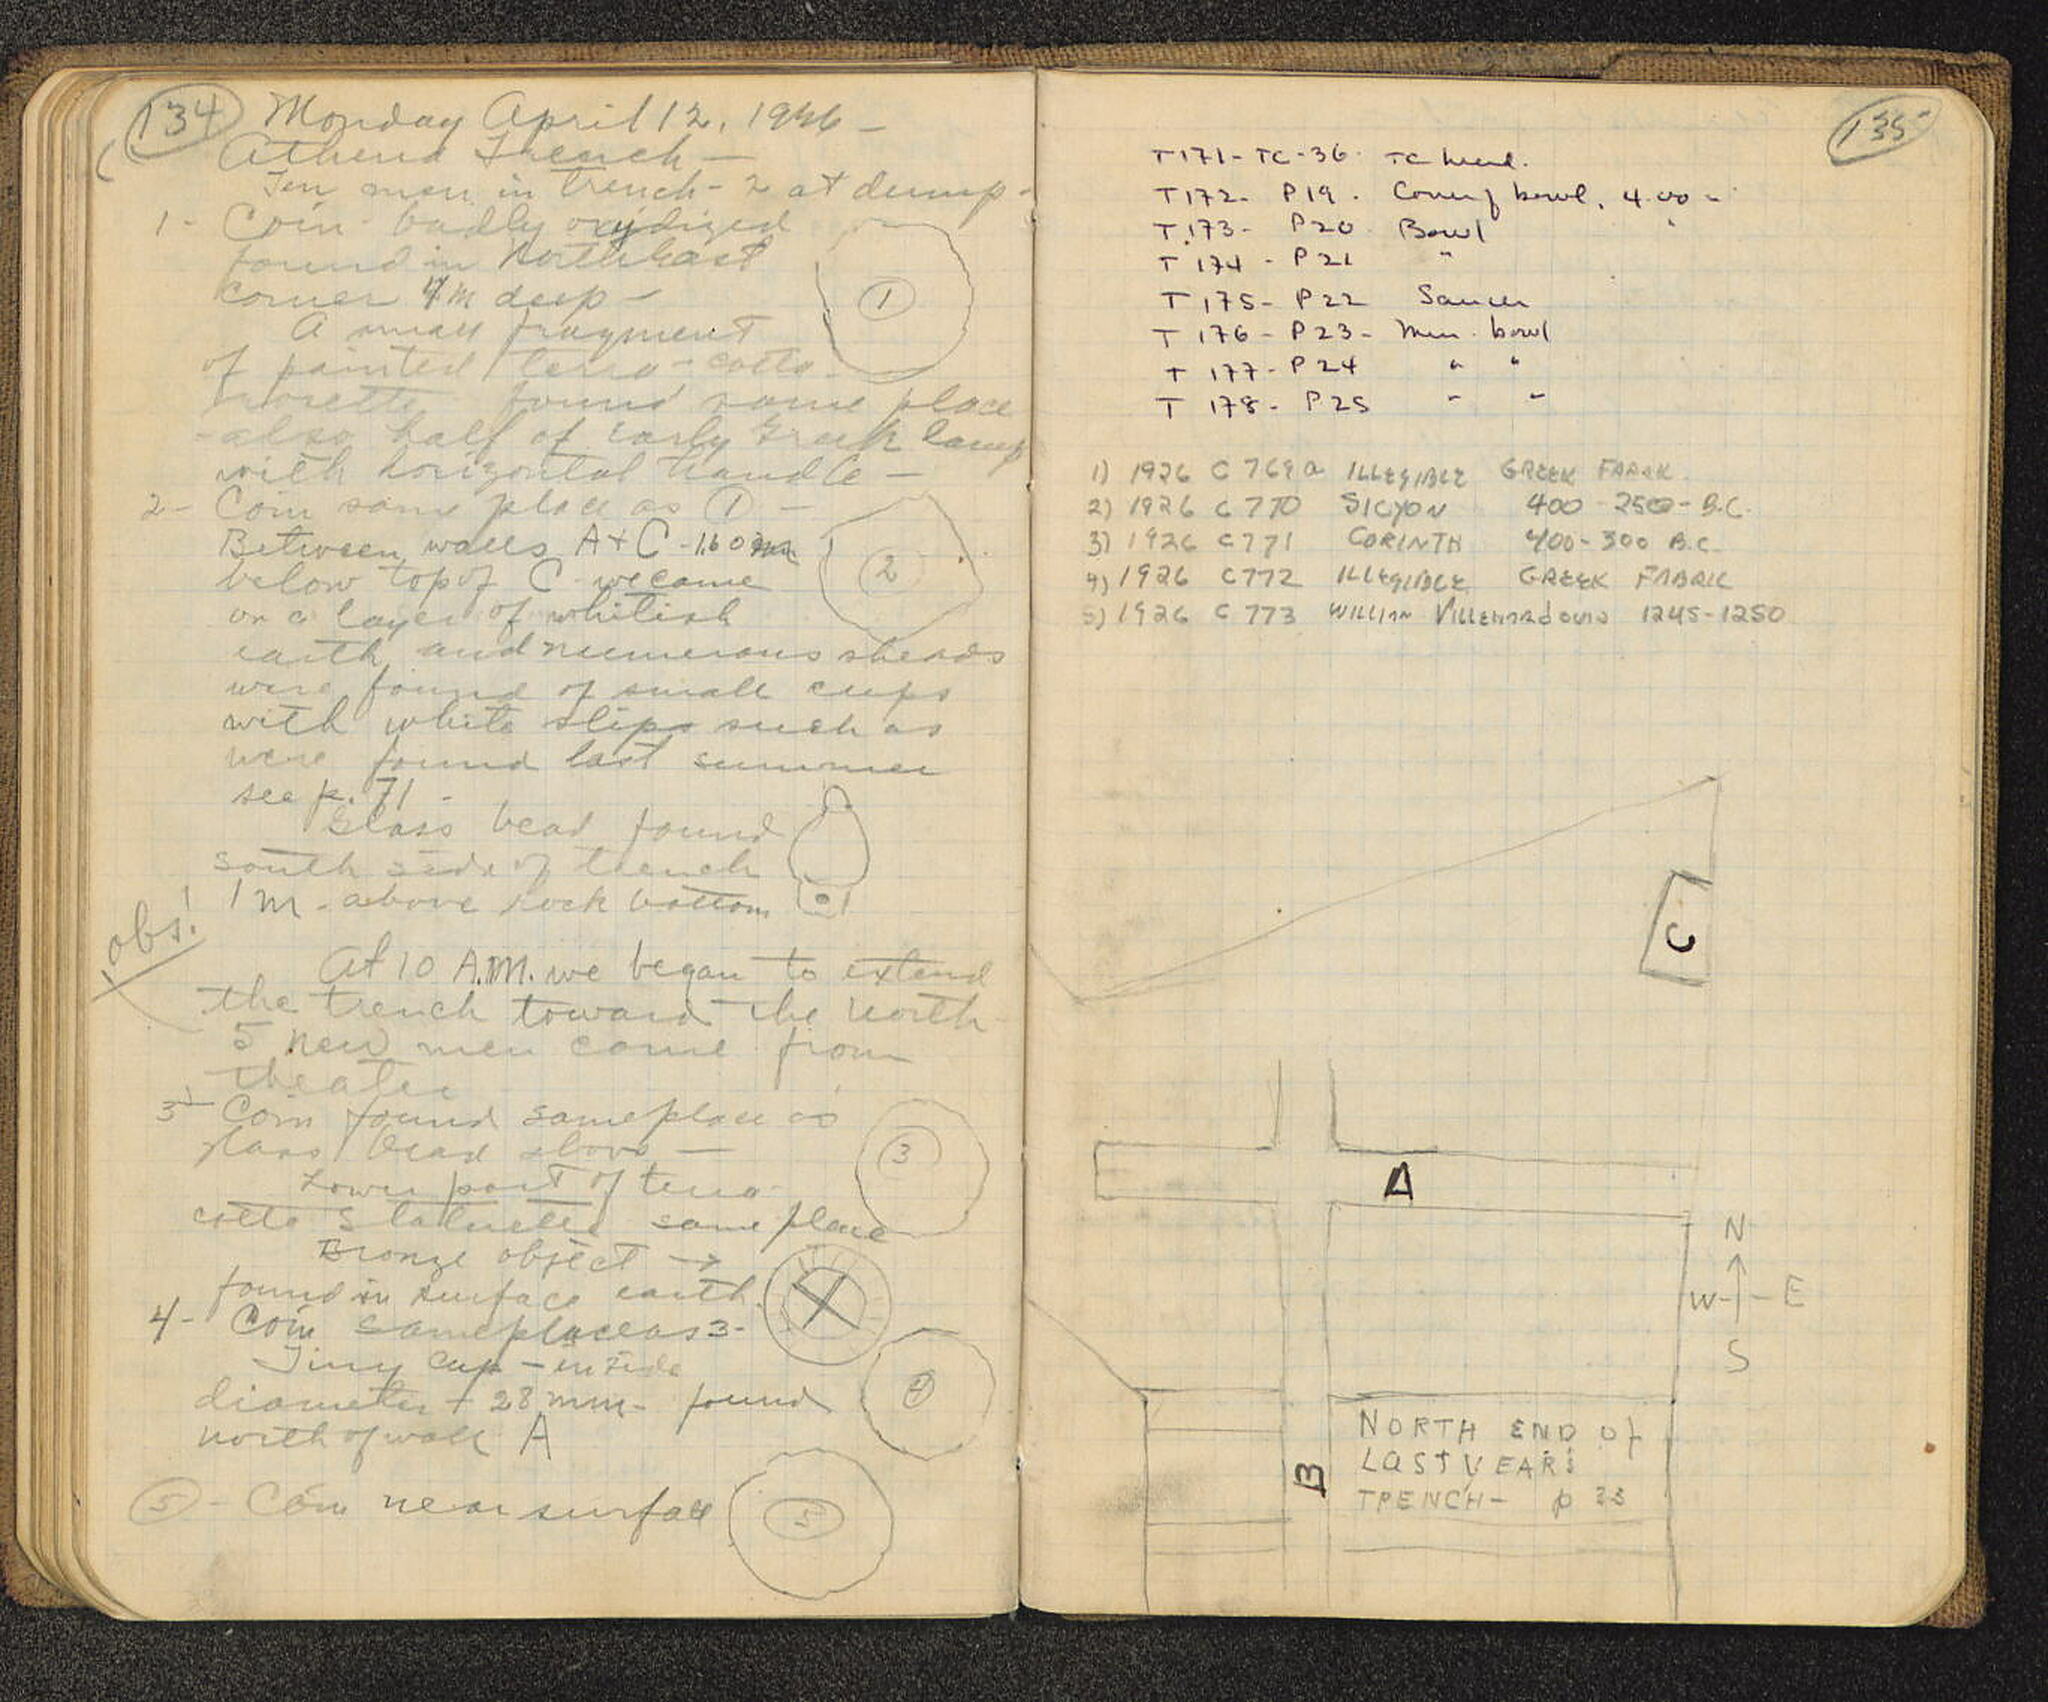 134 Monday April 12, 1926 -
Athena Trench -
Ten men in trench - 2 at dump -
1 - Coin - badly oxydized
found in North East
corner 4 m deep -
A small fragment
of painted terra-cotta
found same place
- also half of early Greek lamp
with horizontal handle -
2 - Coin same place as 1 -
Between walls A + C - 1.60 m
below top of C we came
on a layer of whitish
earth and numerous sherds
were found of small cups
with white slips such as
were found last summer
see p. 71 -
Glass bead found
south side of trench
1 m - above rock bottom
obs!
At 10 A.M. we began to extend
the trench toward the north
5 new men came from
theater
3 - Coin found same place as
glass bead above -
Lower part of terra
cotta statuette same place
Bronze object →
found in surface earth.
4 - Coin same place as 3 -
Tiny cup - inside
diameter + 28 mm - found
north of wall A
5 - Coin near surface
1
2
3
4
5
135
T171 - TC - 36. TC head.
T172 - P19. Cover of bowl, 4.00 -
T173 - P20 Bowl "
T174 - P21 "
T175 - P22 Saucer
T176 - P23 - Min. bowl
T177 - P24 " "
T178 - P25 " "
1) 1926 C 769a ILLEGIBLE GREEK FABRK
2) 1926 C 770 SICYON 400 - 250 - B.C.
3) 1926 C 771 CORINTH 400 - 300 B.C.
4) 1926 C 772 ILLEGIBLE GREEK FABRIC
5) 1926 C 773 WILLIAM VILLEHARDOUIN 1245 - 1250
C
A
N
W - - E
S
B
NORTH END of
LAST YEAR'S
TRENCH - p 33